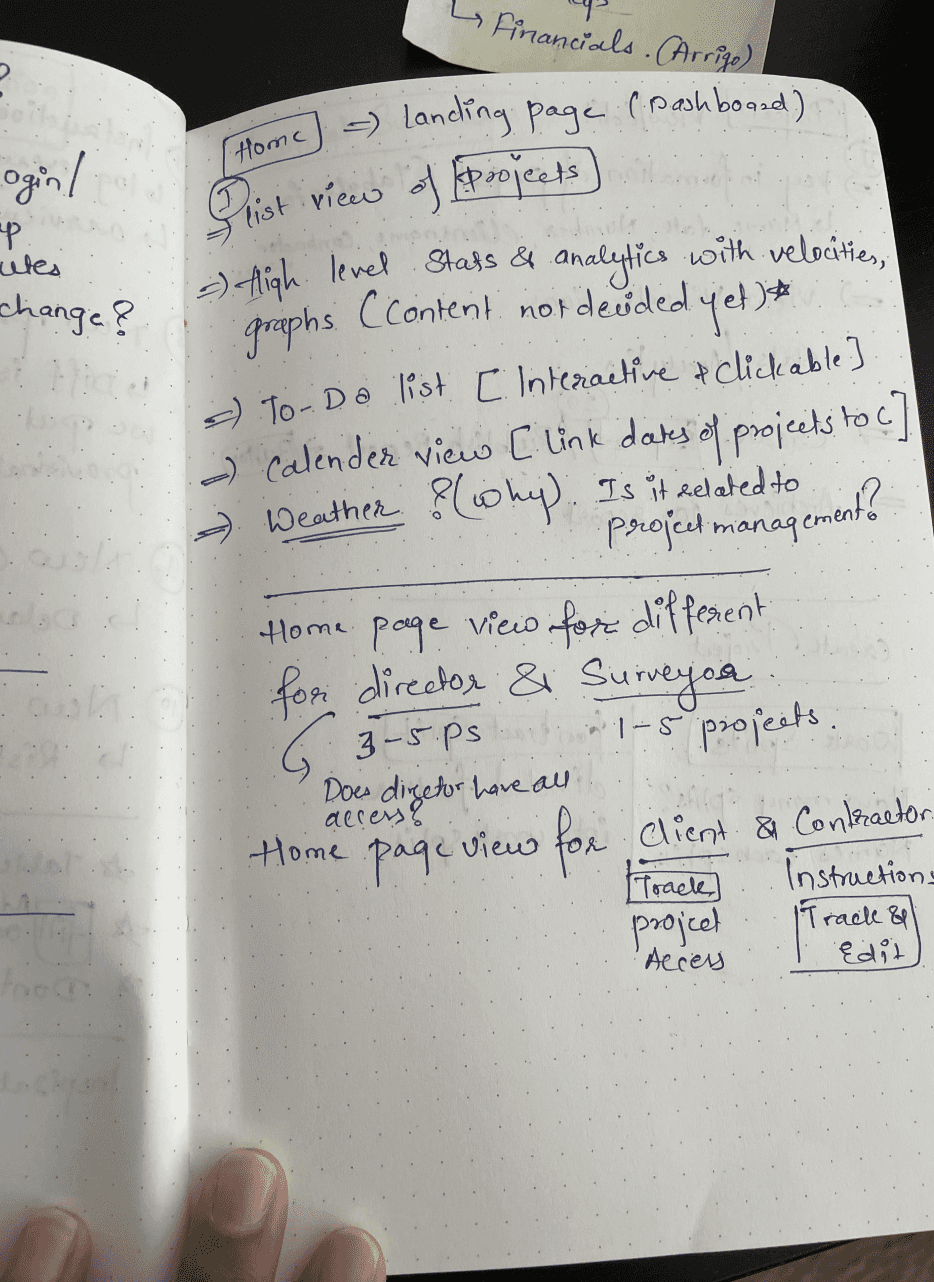 Financials. (Arrigo)
?
ogin/
up
utes
change?
Home => Landing page (Dashboard)
1
=> list view of projects
=> High level Stats & analytics with velocities,
graphs (Content not decided yet)*
=> To-Do list [Interactive & Clickable]
=> Calender view [link dates of projects to C]
=> Weather ? (why). Is it related to
project management?
Home page view for different
for director & Surveyor.
3-5 PS 1-5 projects.
Does director have all
access?
Home page view for Client & Contractor
Track Instructions
project Track &
Access Edit